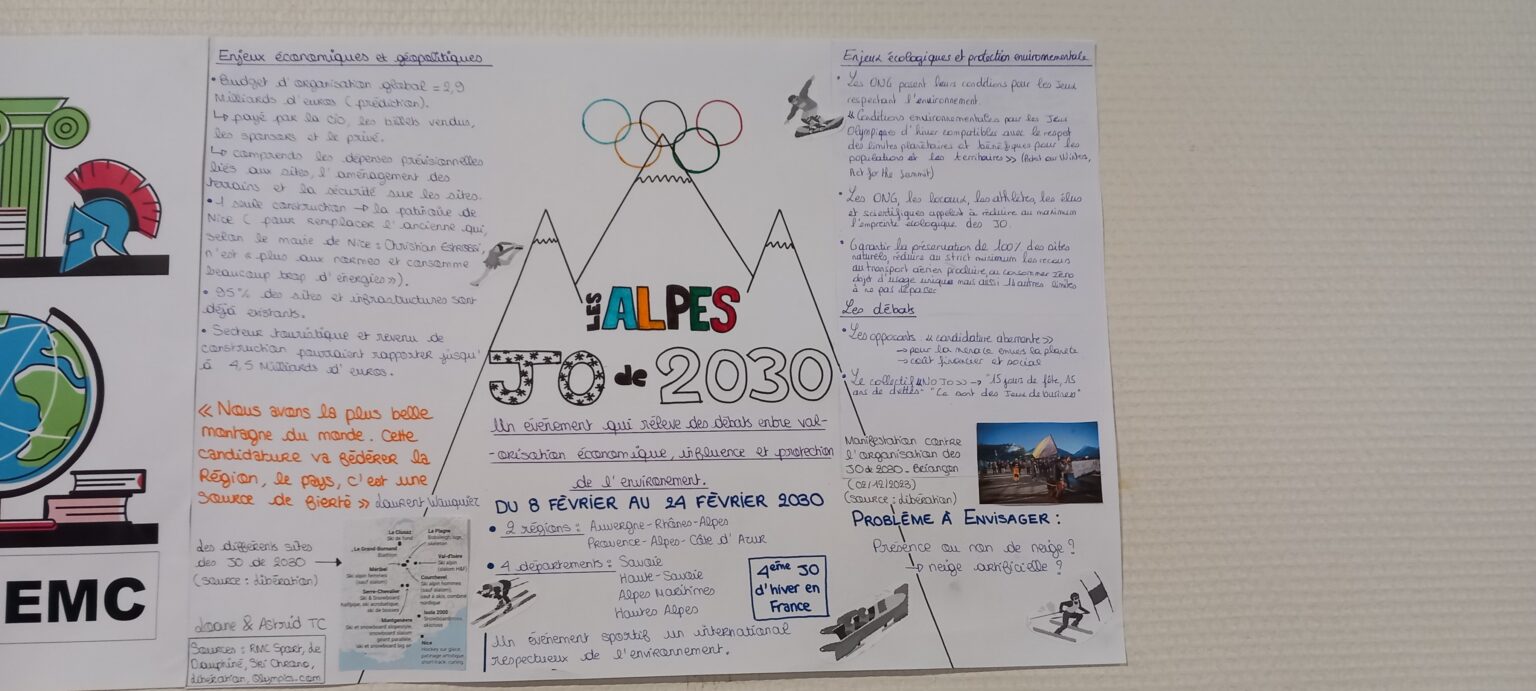 Enjeux économiques et géopolitiques
• Budget d'organisation global = 2,9
Milliards d'euros (prédiction).
↳ payé par la CIO, les billets vendus,
les sponsors et le privé.
↳ comprends les dépenses prévisionnelles
liés aux sites, l'aménagement des
terrains et la sécurité sur les sites.
• 1 seule construction → la patinoire de
Nice (pour remplacer l'ancienne qui,
selon le maire de Nice : Christian Estrosi,
n'est « plus aux normes et consomme
beaucoup trop d'énergies »).
• 95% des sites et infrastructures sont
déjà existants.
• Secteur touristique et revenu de
construction pourraient rapporter jusqu'
à 4,5 Milliards d'euros.
« Nous avons la plus belle
montagne du monde. Cette
candidature va fédérer la
Région, le pays, c'est une
source de fierté » Laurent Wauquiez
des différents sites
des JO de 2030
(source : libération)
Loane & Astrid TC
Sources : RMC Sport, Le
Dauphiné, Ski Chrono,
libération, Olympics.com
EMC
La Clusaz
Ski de fond
Le Grand-Bornand
Biathlon
Méribel
Ski alpin femmes
(sauf slalom)
Serre-Chevalier
Ski & Snowboard
halfpipe, ski acrobatique,
ski de bosses
Montgenèvre
Ski et snowboard slopestyle,
snowboard slalom
géant parallèle,
ski et snowboard big air
La Plagne
Bobsleigh, luge,
skeleton
Val-d'Isère
Ski alpin
(slalom H&F)
Courchevel
Ski alpin hommes
(sauf slalom),
saut à skis, combiné
nordique
Isola 2000
Snowboardcross,
skicross
Nice
Hockey sur glace,
patinage artistique,
short-track, curling
LES ALPES
JO de 2030
Un événement qui relève des débats entre val-
-orisation économique, influence et protection
de l'environnement.
DU 8 FÉVRIER AU 24 FÉVRIER 2030
• 2 régions : Auvergne-Rhônes-Alpes
Provence-Alpes-Côte d'Azur
• 4 départements : Savoie
Haute-Savoie
Alpes Maritimes
Hautes Alpes
4ème JO
d'hiver en
France
Un événement sportif un international
respectueux de l'environnement.
Enjeux écologiques et protection environnementale
• Les ONG posent leurs conditions pour les Jeux
respectant l'environnement.
« Conditions environnementales pour les Jeux
Olympiques d'hiver compatibles avec le respect
des limites planétaires et bénéfiques pour les
populations et les territoires » (Protect our Winters,
Act for the Summit)
• Les ONG, les locaux, les athlètes, les élus
et scientifiques appelent à réduire au maximum
l'empreinte écologique des JO.
• Garantir la préservation de 100% des sites
naturels, réduire au strict minimum les recours
au transport aérien produire, ou consommer zéro
objet d'usage unique mais aussi 11 autres limites
à ne pas dépasser
Les débats
• Les opposants : « candidature aberrante »
→ pour la menace envers la planète
→ coût financier et social
• Le collectif « No JO » → "15 jours de fête, 15
ans de dettes" "Ce sont des Jeux de business"
Manifestation contre
l'organisation des
JO de 2030 - Briançon
(02/12/2023)
(source : libération)
PROBLÈME À ENVISAGER :
Présence ou non de neige ?
↳ neige artificielle ?